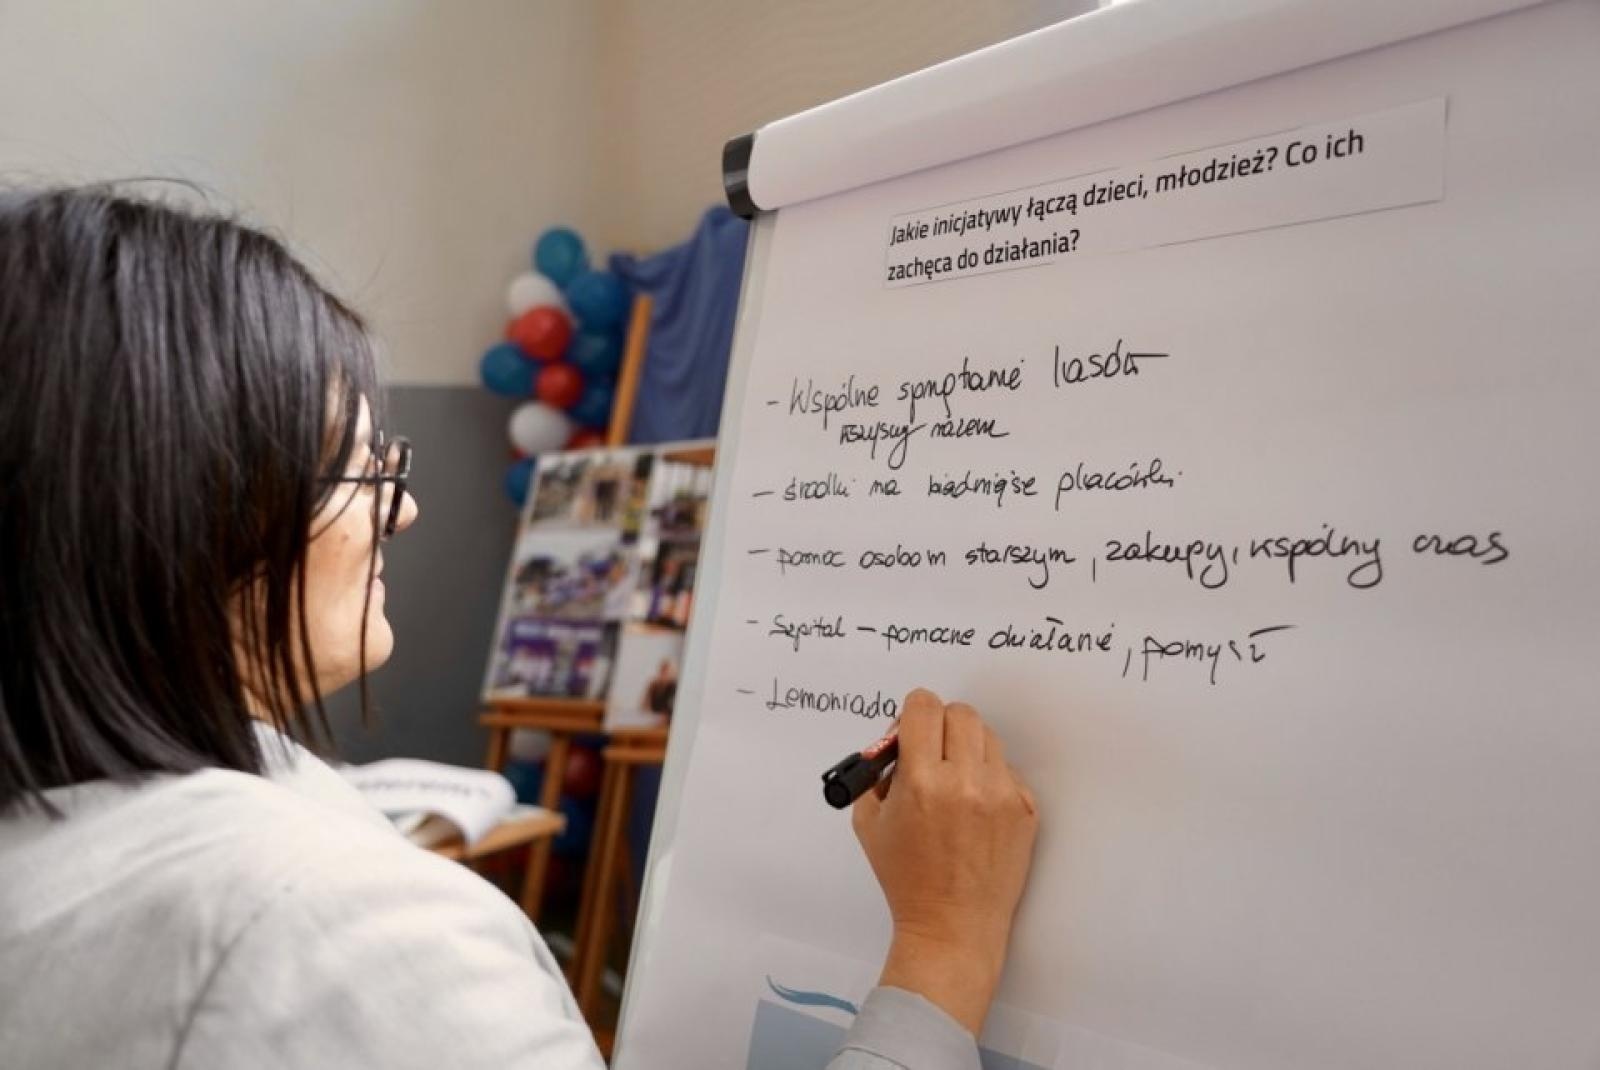 Jakie inicjatywy łączą dzieci, młodzież? Co ich
zachęca do działania?
- Wspólne sprzątanie lasów
wszyscy razem
- środki na biedniejsze placówki
- pomoc osobom starszym, zakupy, wspólny czas
- Szpital - pomocne działanie, pomysł
- Lemoniada